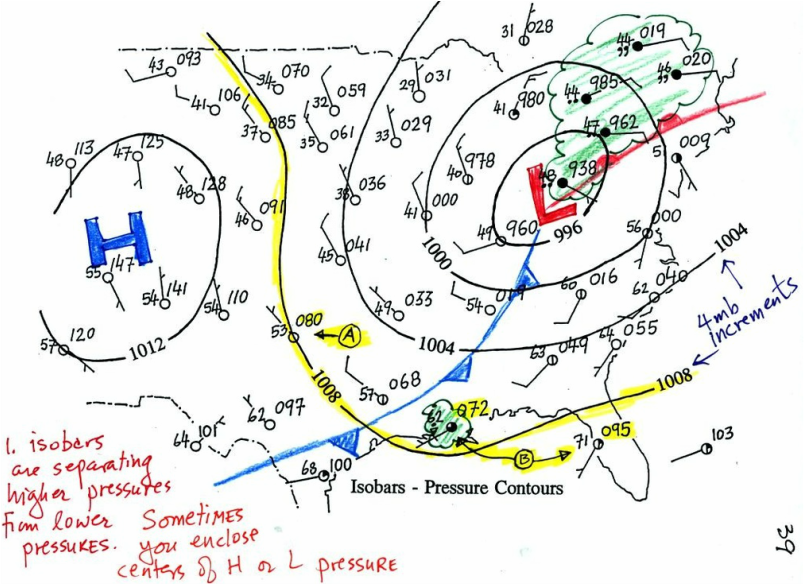 31 028
44 019
46 020
43 093
34 070
29 031
44 985
41 106
32 059
41 980
47 962
37 085
35 061
33 029
5 009
48 113
47 125
40 978
48 938
48 128
38 036
46 091
41 000
49 960
996
56 000
H
L
45 041
1000
1004
55 147
54 141
54 110
49 033
54 019
60 016
62 040
4mb
increments
53 080
A
57 120
1012
1004
63 049
64 055
1008
57 068
1008
62 097
072
64 101
71 095
103
B
68 100
Isobars - Pressure Contours
1. isobars
are separating
higher pressures
from lower
pressures.
Sometimes
you enclose
centers of H or L pressure
39